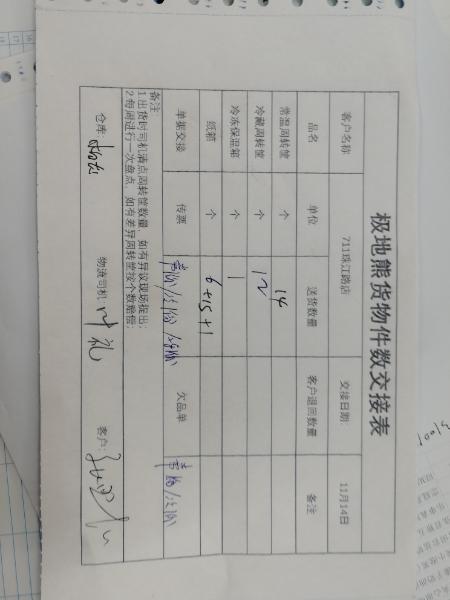 极地熊货物件数交接表
客户名称 711珠江路店 交接日期: 11月14日
品名 单位 送货数量 客户退回数量 备注
常温周转筐 个 14
冷藏周转筐 个 12
冷冻保温箱 个 1
纸箱 个 6+15+1
单据交接 传票 欠品单
备注:
1.出货时司机清点周转筐数量,如有异议现场提出;
2.每周进行一次盘点,如有差异周转筐按个数赔偿;
仓库: 物流司机: 客户: